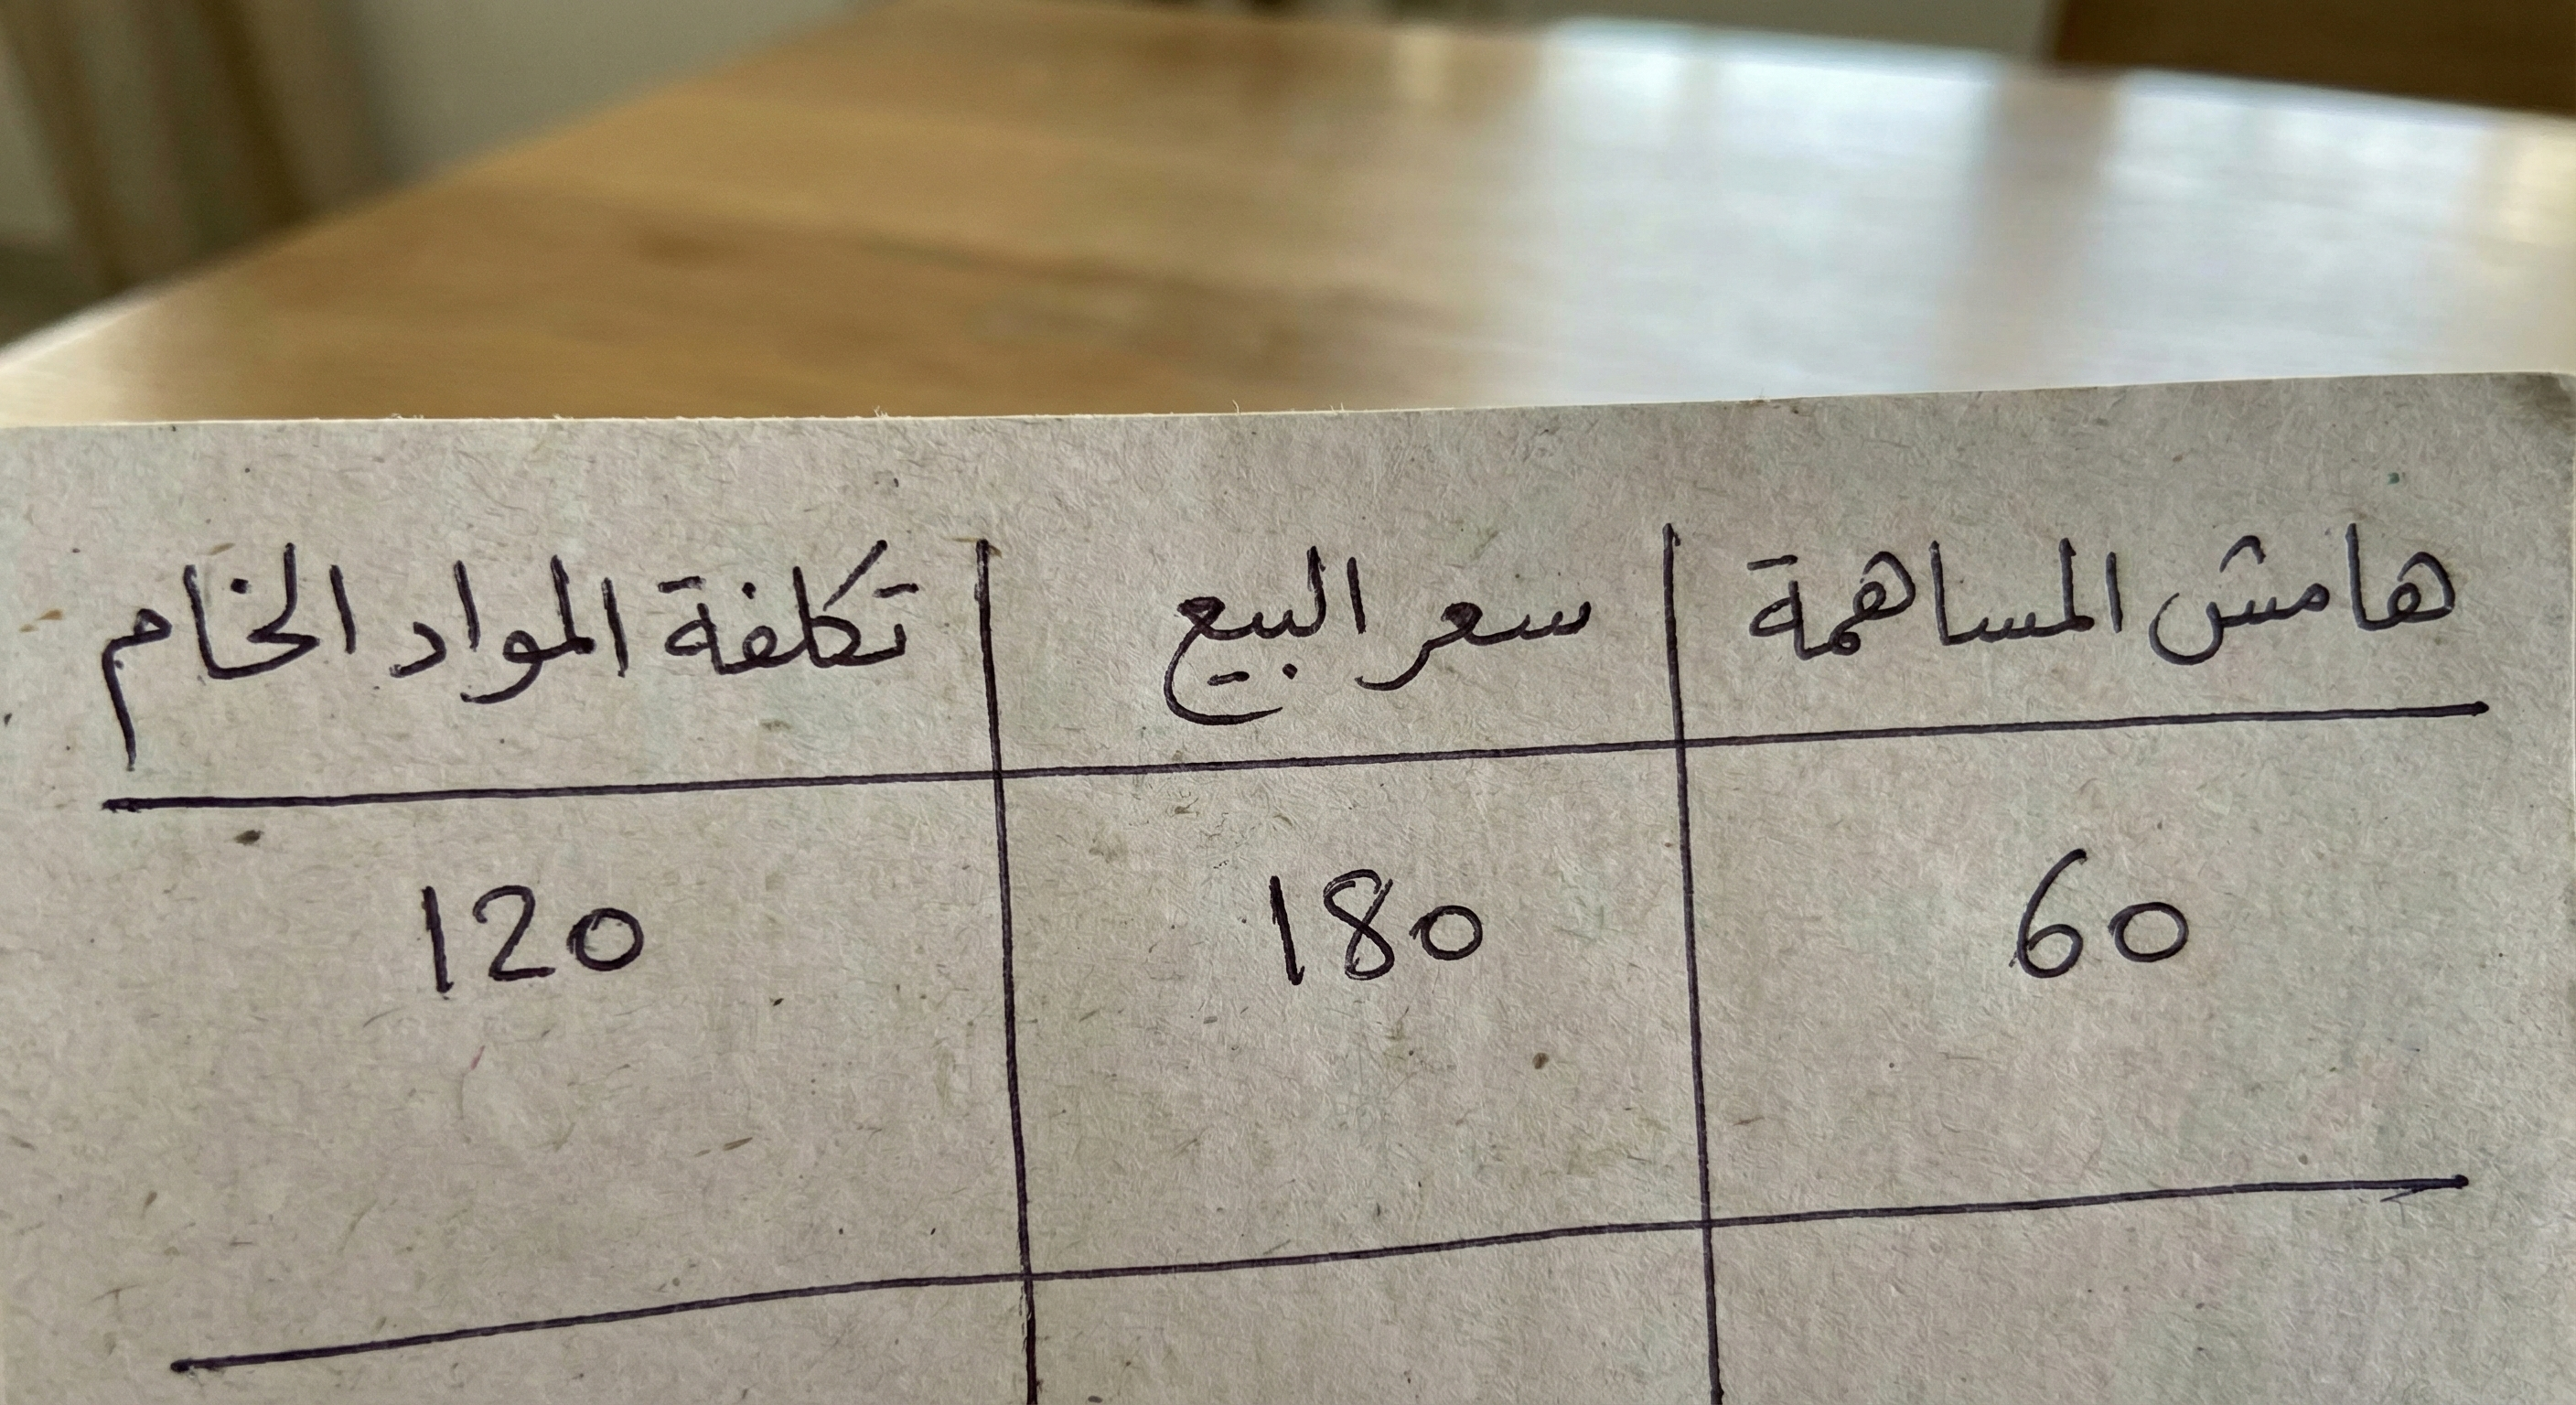 هامش المساهمة سعر البيع تكلفة المواد الخام
60 180 120